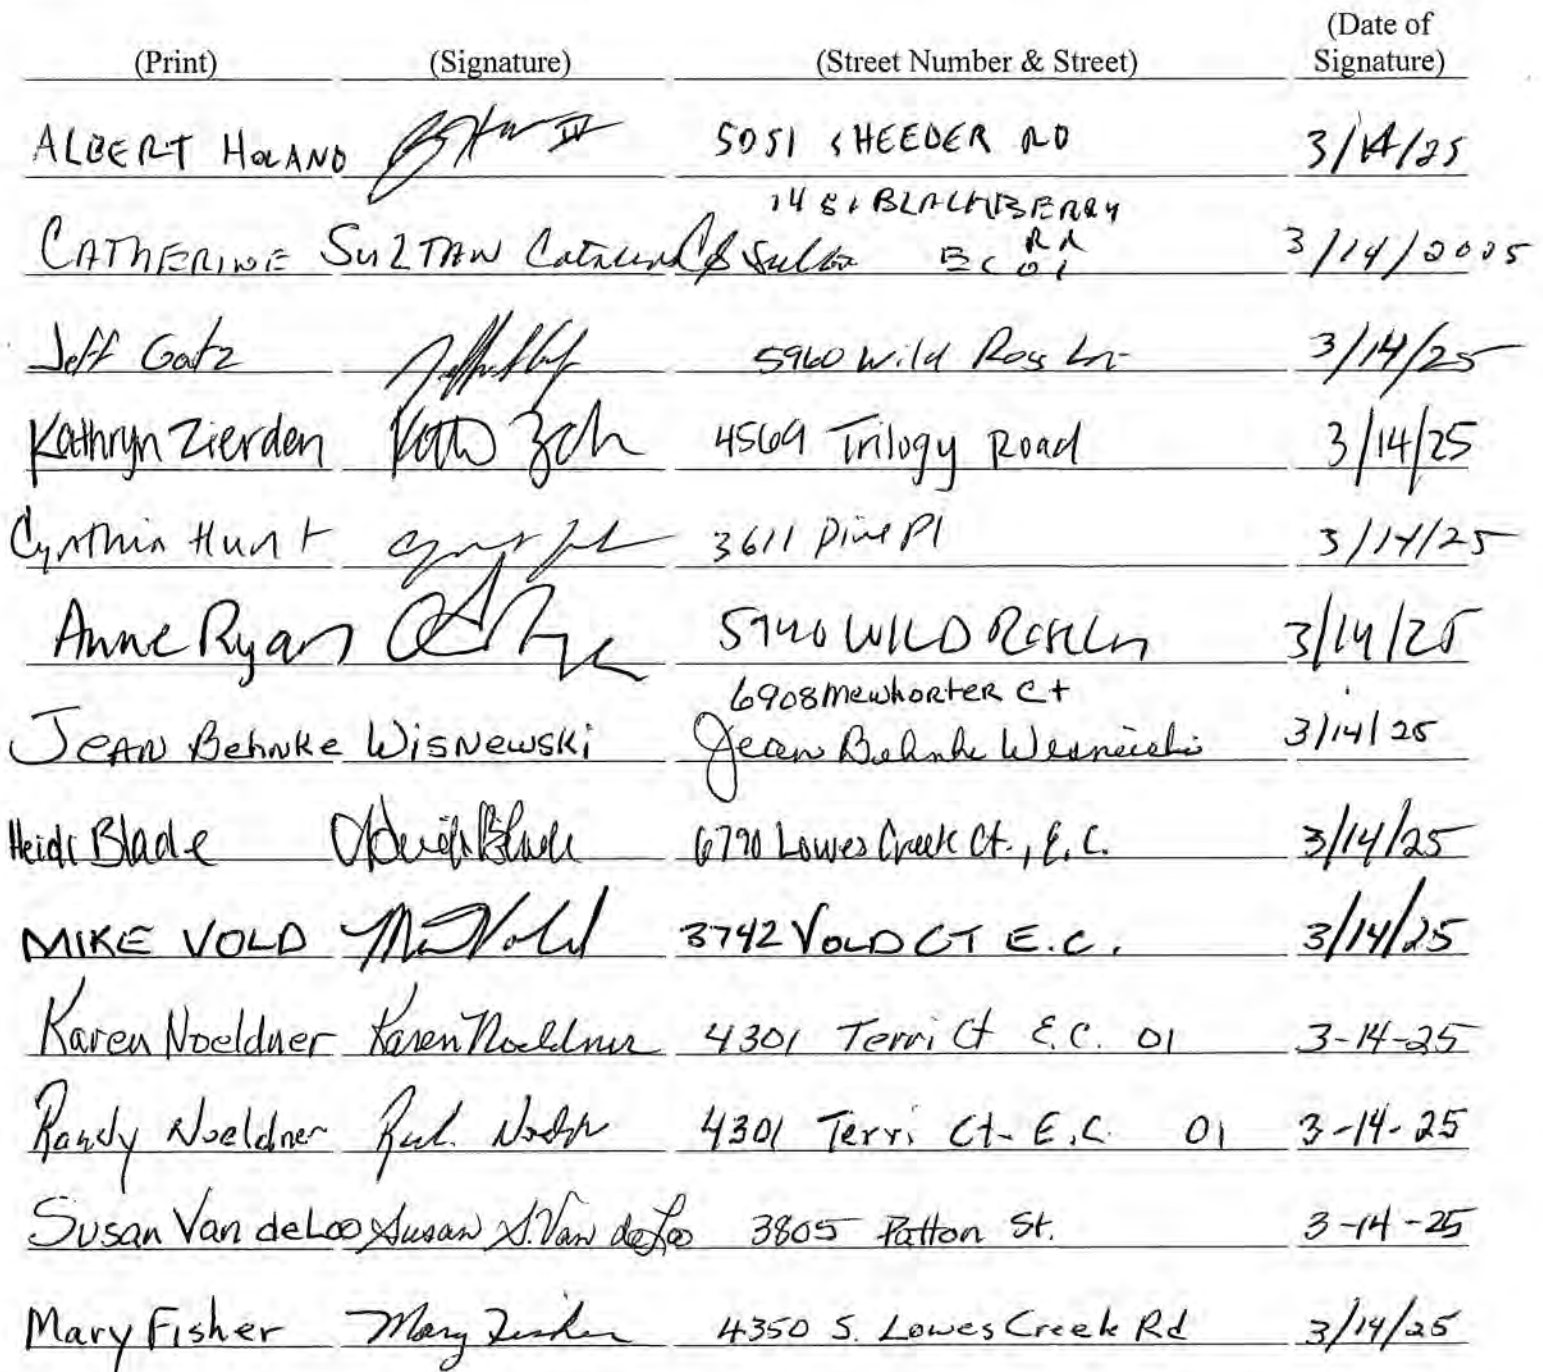 (Print) (Signature) (Street Number & Street) (Date of Signature)
ALBERT HOLAND 5051 SHEEDER RD 3/14/25
1451 BLACKBERRY Rd
CATHERINE SULTAN EC 01 3/14/2025
Jeff Gatz 5960 Wild Rose Ln 3/14/25
Kathryn Zierden 4569 Trilogy Road 3/14/25
Cynthia Hunt 3611 Pine Pl 3/14/25
Anne Ryan 5940 WILD ROSE Ln 3/14/25
6908 Mewhorter Ct
JEAN Behnke WISNEWSKI Jean Behnke Wisnewski 3/14/25
Heidi Blade Heidi Blade 6790 Lowes Creek Ct., E.C. 3/14/25
MIKE VOLD 3742 VOLD CT E.C. 3/14/25
Karen Noeldner Karen Noeldner 4301 Terri Ct E.C. 01 3-14-25
Randy Noeldner 4301 Terri Ct- E.C. 01 3-14-25
Susan Van deLoo Susan S. Van deLoo 3805 Patton St. 3-14-25
Mary Fisher Mary Fisher 4350 S. Lowes Creek Rd 3/14/25